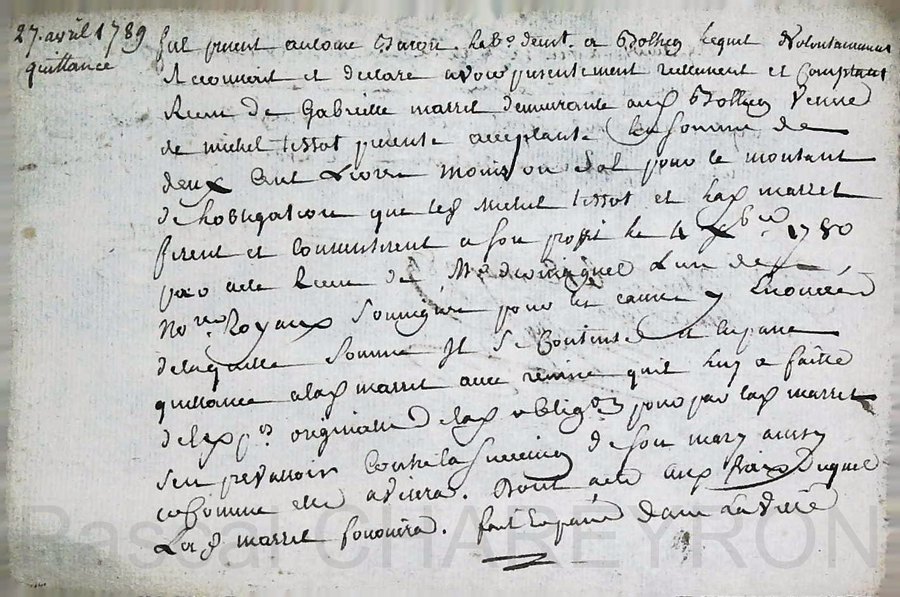 27. avril 1789
quittance
fut presant antoine Baron. hab.t de
lequel volontairement
Reconnait et declare avoir presentement reellement et comptant
Receu de Gabrielle marrel demeurante aux veuve
de michel tissot presente acceptante la somme de
deux Cent Livres moins un Sol pour le montant
de L'obligation que led michel tissot et lad marrel
firent et consentirent a son proffit le 4 1780
par acte Receu de M.e L'un de
No.res Royaux Soussignés pour les causes y Enoncées
delaquelle Somme Il Se Contente et En passe
quittance a lad marrel avec remise qu'il luy a faitte
de originalle de lad oblig.on pour par lad marrel
S'en prevalloir Contre la succession de Son mary ainsy
et Comme elle avisera. Dont acte aux frais duquel
Lad marrel fournira. fait Et passé dans La ville
Pascal CHAREYRON